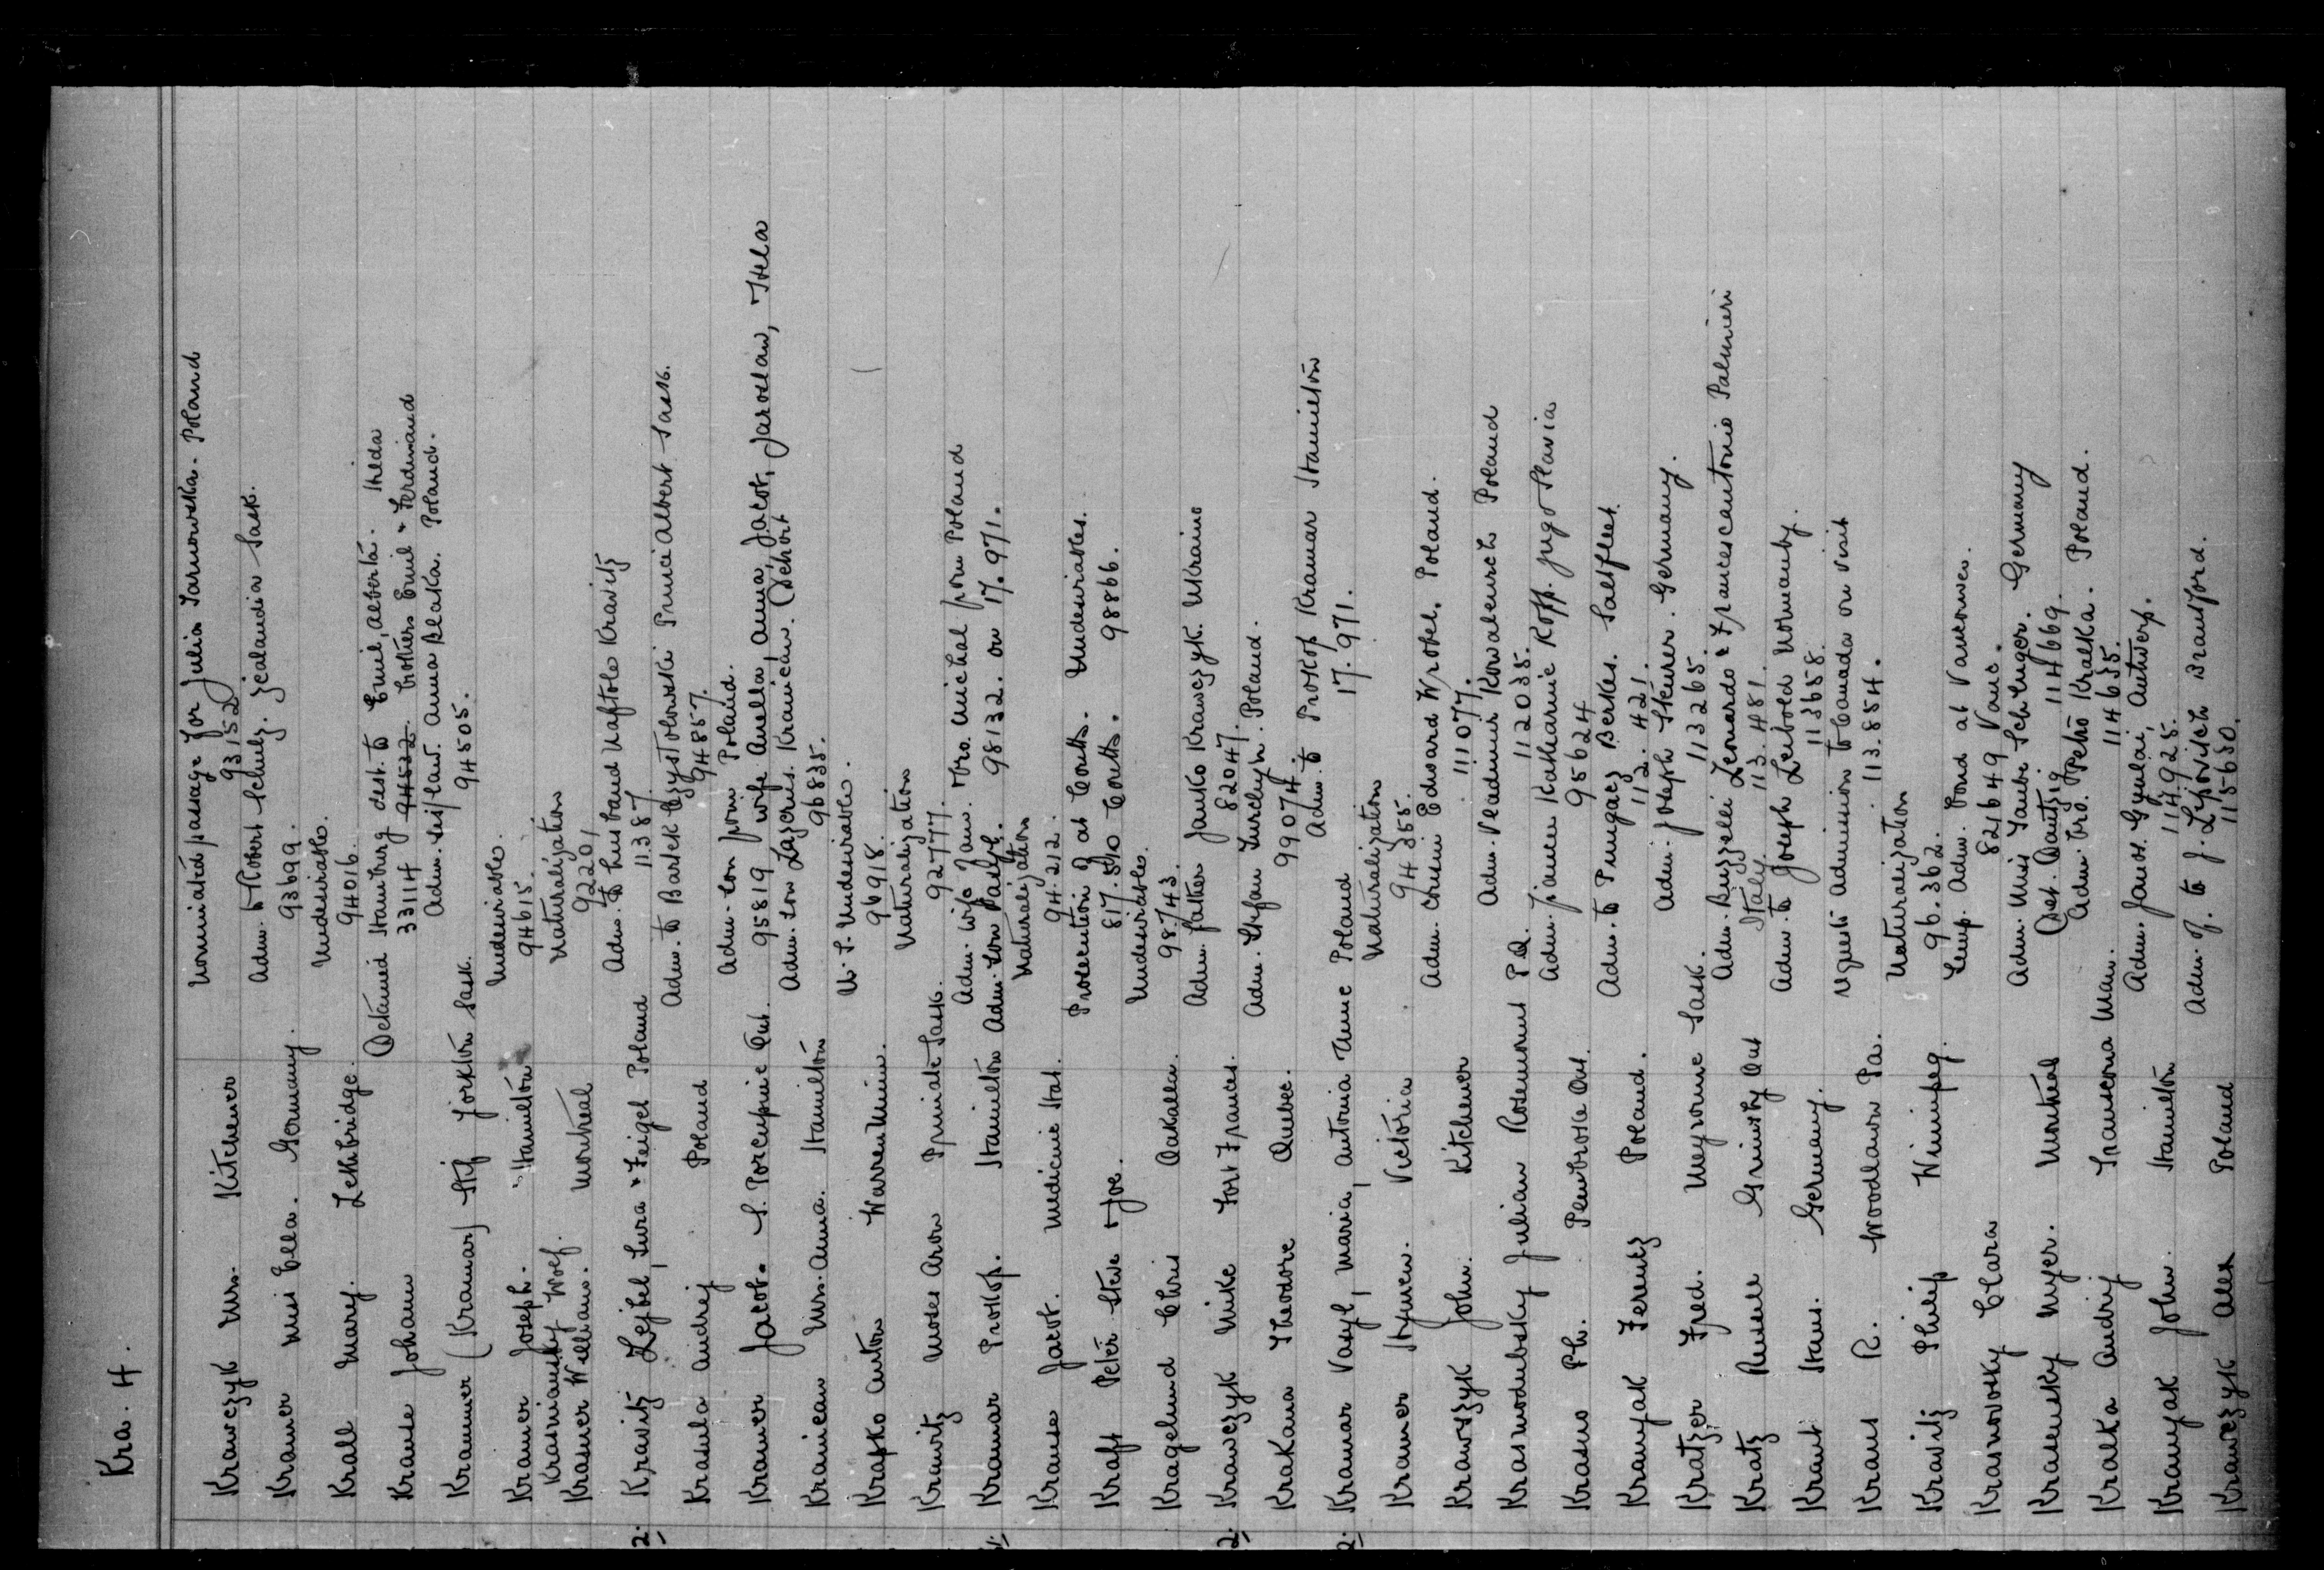 Kra. 4.
Krawczyk Mrs. Kitchener Nominated passage for Julia Tarnowska. Poland
93152
Kramer Miss Ella. Germany. Adm. to Robert Schulz. Zealandia Sask.
93699.
Krall Mary. Lethbridge. Undesirable.
94016.
Krause Johann Detained Hamburg dest. to Emil, Alberta. Hilda
33114 94532. brothers Emil & Ferdinand
Krammer (Kramar) Stif Yorkton Sask. Adm. sis/law. Anna Poland.
94505.
Kramer Joseph. Hamilton Undesirable.
94615.
Krasniansky Wolf.
Krasner William. Montreal Naturalization
92201
2. Kravitz Lejbel, Sura & Feigel Poland Adm. to husband Naftole Kravitz
11387.
Krasula Andrej Poland Adm. to Bartek Czystolowski Prince Albert Sask.
94857.
Kramer Jacob. S. Porcupine Ont. Adm. son from Poland.
95819 wife Anella, Anna, Jacob, Jaroslaw, Hela
Krainean Mrs. Anna. Hamilton Adm. son Lazerus. Krainean. Deport
96835.
Krapko Anton Warren Minn. U.S. Undesirable.
96918.
Krawitz Moses Aron Primate Sask. Naturalization
92777.
Kramar Prokop. Hamilton Adm. wife & bro. Michal from Poland
Adm. son Vasyl. 98132. on 17.971.
Krause Jacob. Medicine Hat. Naturalization
94.212.
Kraft Peter Steve & Joe. Prosecution of at Coutts. Undesirables.
817.510 Coutts. 98866.
Kragelund Chris Oakalla. Undesirables.
98743.
2. Krawczyk Mike Fort Frances. Adm. father Janko Krawczyk. Ukraine
82047.
Krakana Theodore Quebec. Adm. Stefan Poland.
99074.
2. Kramar Vasyl, Maria, Antonia Anne Poland Adm. to Prokop Kramar Hamilton
17.971.
Kramer Hymen. Victoria Naturalization
94355.
Krawszyk John. Kitchener Adm. cousin Edward Wrobel. Poland.
111077.
Krasnodubsky Julian Rosemount P.Q. Adm. Vladimir Kowalewich Poland
112035.
Krasno Ph. Pembroke Ont. Adm. fiancee Katharine Kopp. Jugo Slavia
95624
Kranyak Ferentz Poland. Adm. to Berkes. Saltfleet
112.421.
Kratzer Fred. Meyronne Sask. Adm. Joseph Steurer. Germany.
113265.
Kratz Russell Grimsby Ont Adm. Buzzelli Leonardo & Francescantonio Palmieri
Italy 113.481.
Kraut Hans. Germany. Adm. to Joseph Leibold Normanby.
113658.
Kraus R. Woodlawn Pa. request admission to Canada on visit
113.854.
Kravitz Philip Winnipeg. Naturalization
96.362.
Krasnovsky Clara Temp. Adm. bond at Vancouver.
821649 Vanc.
Krasensky Myer. Montreal Adm. Miss Taube Schlinger. Germany
Det. Dantzig 114669.
Kralka Andrij Transcona Man. Adm. bro. Petro Kralka. Poland.
114635.
Kranyak John. Hamilton Adm. Janos. Gyulai, Antwerp.
114.925.
Krawczyk Alex Poland Adm. of. to J. Brantford.
115-650.